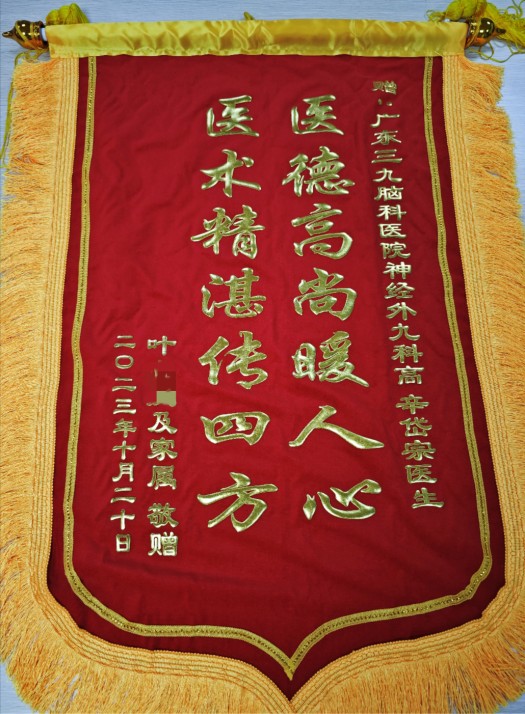 赠：广东三九脑科医院神经外九科高 辛岱宗医生
医德高尚暖人心
医术精湛传四方
叶 及家属 敬赠
二〇二三年十月二十日